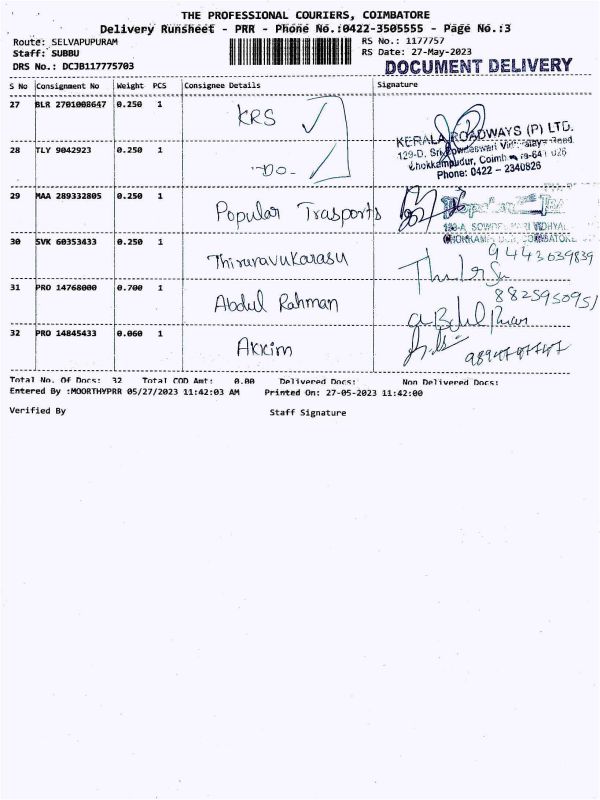 THE PROFESSIONAL COURIERS, COIMBATORE
Delivery Runsheet - PRR - Phone No.:0422-3505555 - Page No.:3
Route: SELVAPUPURAM RS No.: 1177757
Staff: SUBBU RS Date: 27-May-2023
DRS No.: DCJB117775703 DOCUMENT DELIVERY
S No Consignment No Weight PCS Consignee Details Signature
27 BLR 2701008647 0.250 1 KRS
KERALA ROADWAYS (P) LTD.
28 TLY 9042923 0.250 1 -Do-
129-D, Sri
Chokkampudur, Coimb
Phone: 0422 - 2340826
29 MAA 289332805 0.250 1 Popular Trasports
30 SVK 60353433 0.250 1 Thiruravukarasu 9443639839
31 PRO 14768000 0.700 1 Abdul Rahman 8825950951
32 PRO 14845433 0.060 1 Akkim
Total No. Of Docs: 32 Total COD Amt: 0.00 Delivered Docs: Non Delivered Docs:
Entered By :MOORTHYPRR 05/27/2023 11:42:03 AM Printed On: 27-05-2023 11:42:00
Verified By Staff Signature